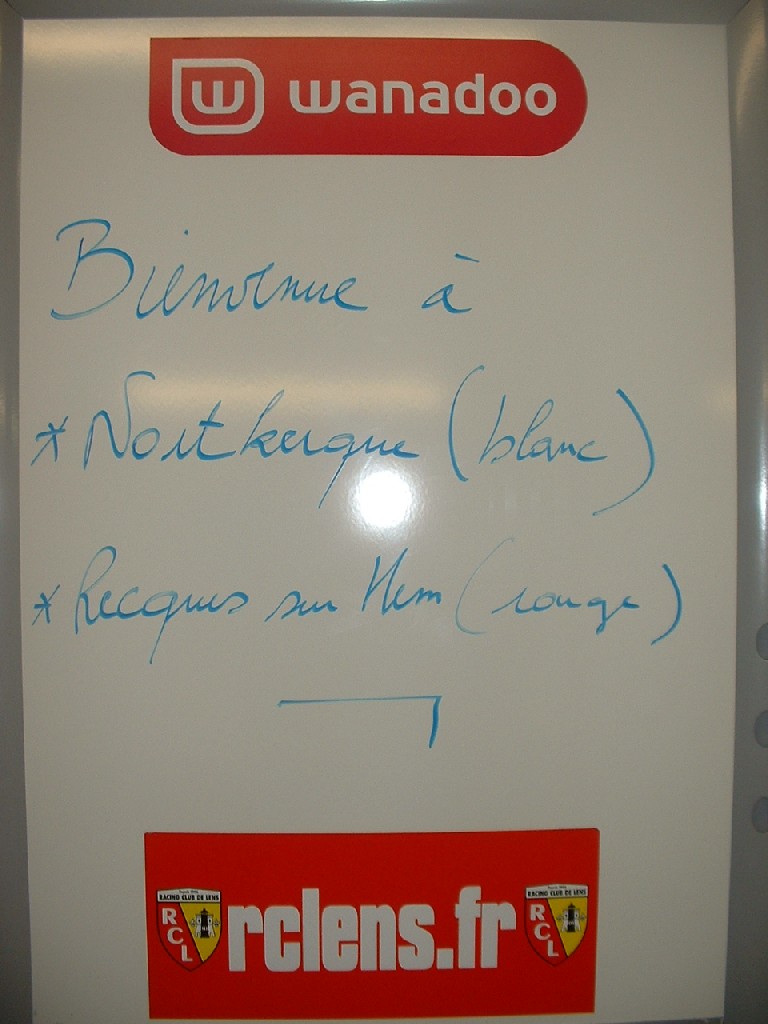 w wanadoo
Bienvenue à
* Nortkerque (blanc)
* Recques sur Hem (rouge)
RACING CLUB DE LENS
RCL
rclens.fr
RACING CLUB DE LENS
RCL